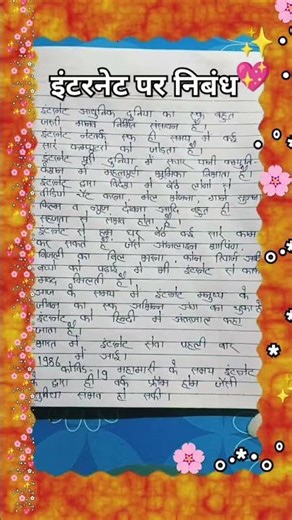 इंटरनेट पर निबंध
इंटरनेट आधुनिक दुनिया का एक बहुत
मानव निर्मित संसाधन है।
इंटरनेट नेटवर्क एक ही समय में कई
सारे कंप्यूटरों को जोड़ता है।
इंटरनेट पूरी दुनिया में संचार
में महत्वपूर्ण भूमिका निभाता है।
इंटरनेट द्वारा विदेश में बैठे लोगों से
चैट करना, मेल भेजना, गाने सुनना
फिल्म व न्यूज देखना आदि बहुत ही
सहजता से संभव होता है।
इंटरनेट से हम घर बैठे कई सारे काम
कर सकते हैं जैसे ऑनलाइन शॉपिंग,
बिजली का बिल भरना, फोन रिचार्ज आदि
बच्चों को पढ़ाई में भी इंटरनेट से काफी
मदद मिलती है।
आज के समय में इंटरनेट मनुष्य के
जीवन का एक अभिन्न अंग बन चुका है
इंटरनेट को हिन्दी में अंतरजाल कहा
जाता है।
भारत में इंटरनेट सेवा पहली बार
1986 में आई।
कोविड 19 महामारी के समय इंटरनेट
के द्वारा ही वर्क फ्रॉम होम जैसी
सुविधा संभव हो सकी।